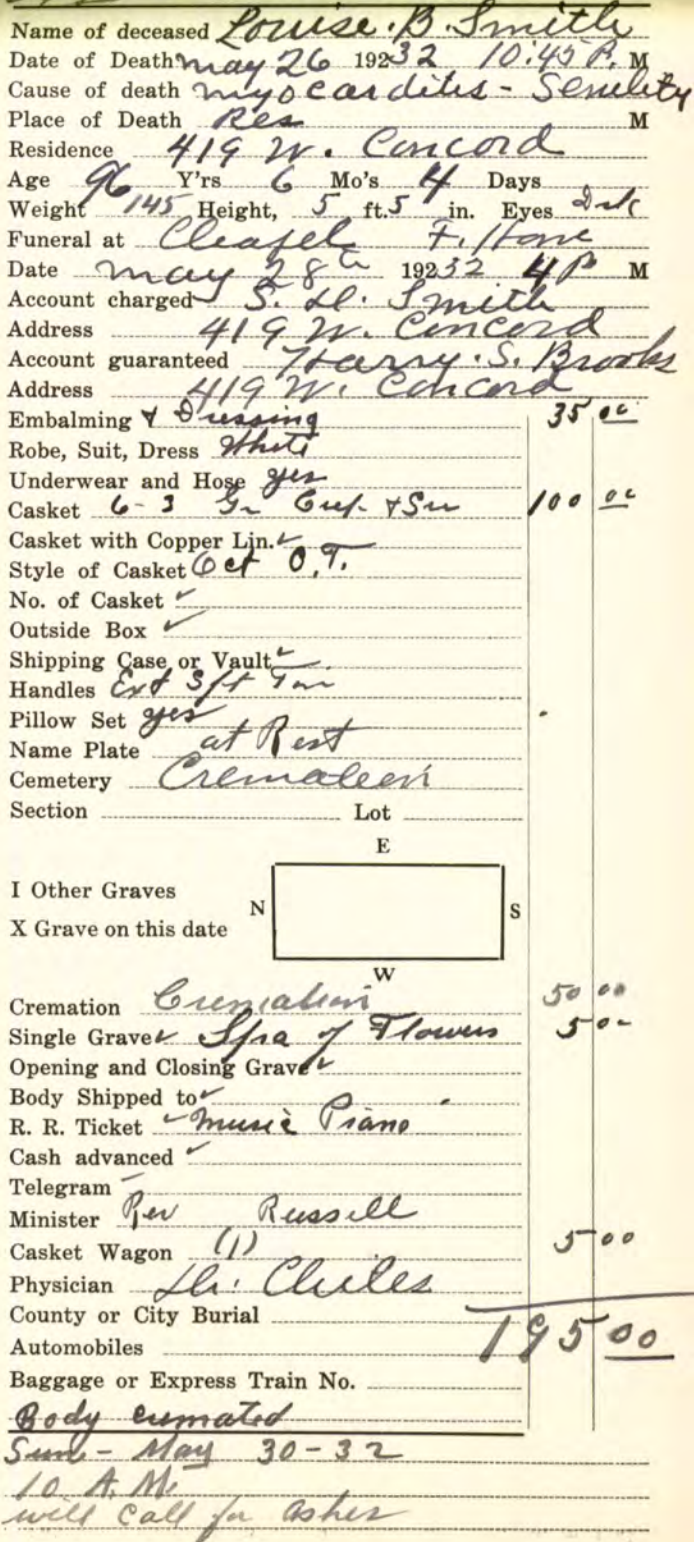 Name of deceased Louise. B. Smith
Date of Death may 26 19232 10:45 P. M
Cause of death myocardites - Senility
Place of Death Res M
Residence 419 W. Concord
Age 96 Y'rs 6 Mo's 4 Days
Weight 145 Height, 5 ft. 5 in. Eyes Drk
Funeral at Chapel F. Home
Date may 28th 19232 4 P M
Account charged S. H. Smith
Address 419 W. Concord
Account guaranteed Harry. S. Brooks
Address 419 W. Concord
Embalming & Dressing 35 00
Robe, Suit, Dress White
Underwear and Hose yes
Casket 6-3 Gr 100 00
Casket with Copper Lin. ✓
Style of Casket Oct O.T.
No. of Casket ✓
Outside Box ✓
Shipping Case or Vault ✓
Handles Ext
Pillow Set yes
Name Plate at Rest
Cemetery Cremation
Section Lot
E
I Other Graves
N S
X Grave on this date
W
Cremation Cremation 50 00
Single Grave ✓ Spra of Flowers 5 00
Opening and Closing Grave ✓
Body Shipped to ✓
R. R. Ticket ✓ music Piano
Cash advanced ✓
Telegram -
Minister Rev Russell
Casket Wagon (1) 5 00
Physician Dr. Chiles
County or City Burial
195 00
Automobiles
Baggage or Express Train No.
Body cremated
Sun - May 30-32
10 A.M.
will call for ashes